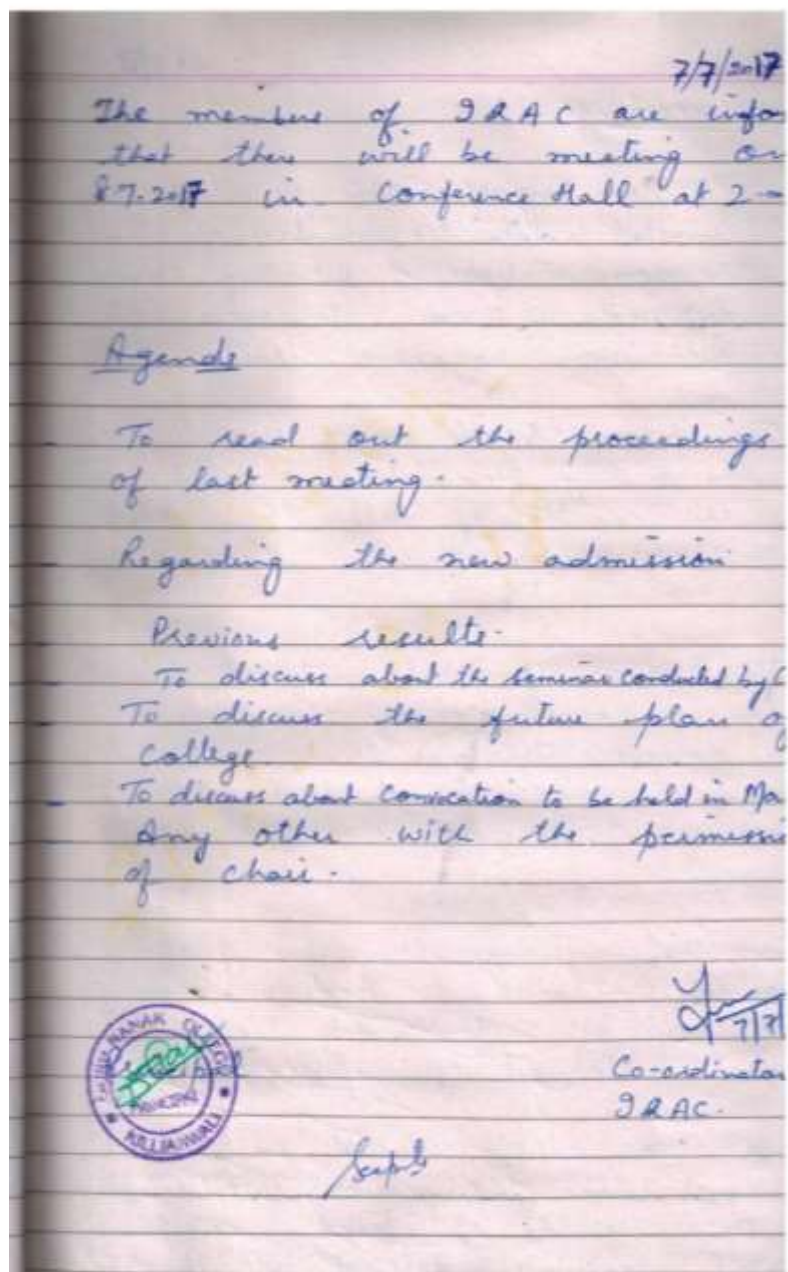 7/7/2017
The members of IQAC are infor
that there will be meeting on
8.7.2017 in Conference Hall at 2-
Agenda
- To read out the proceedings
of last meeting.
- Regarding the new admission
Previous results.
- To discuss about the seminar conducted by C
To discuss the future plan o
College
- To discuss about convocation to be held in Ma
- Any other with the permissi
of chair.
7/7/
Co-ordinator
IQAC.
NANAK COLLEGE
PRINCIPAL
KILLIANWALI